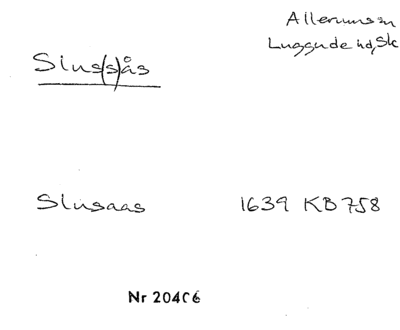 Allerums sn
Luggude hd, Sk
Slus(s)ås
Slusaas 1639 KB 758
Nr 20406